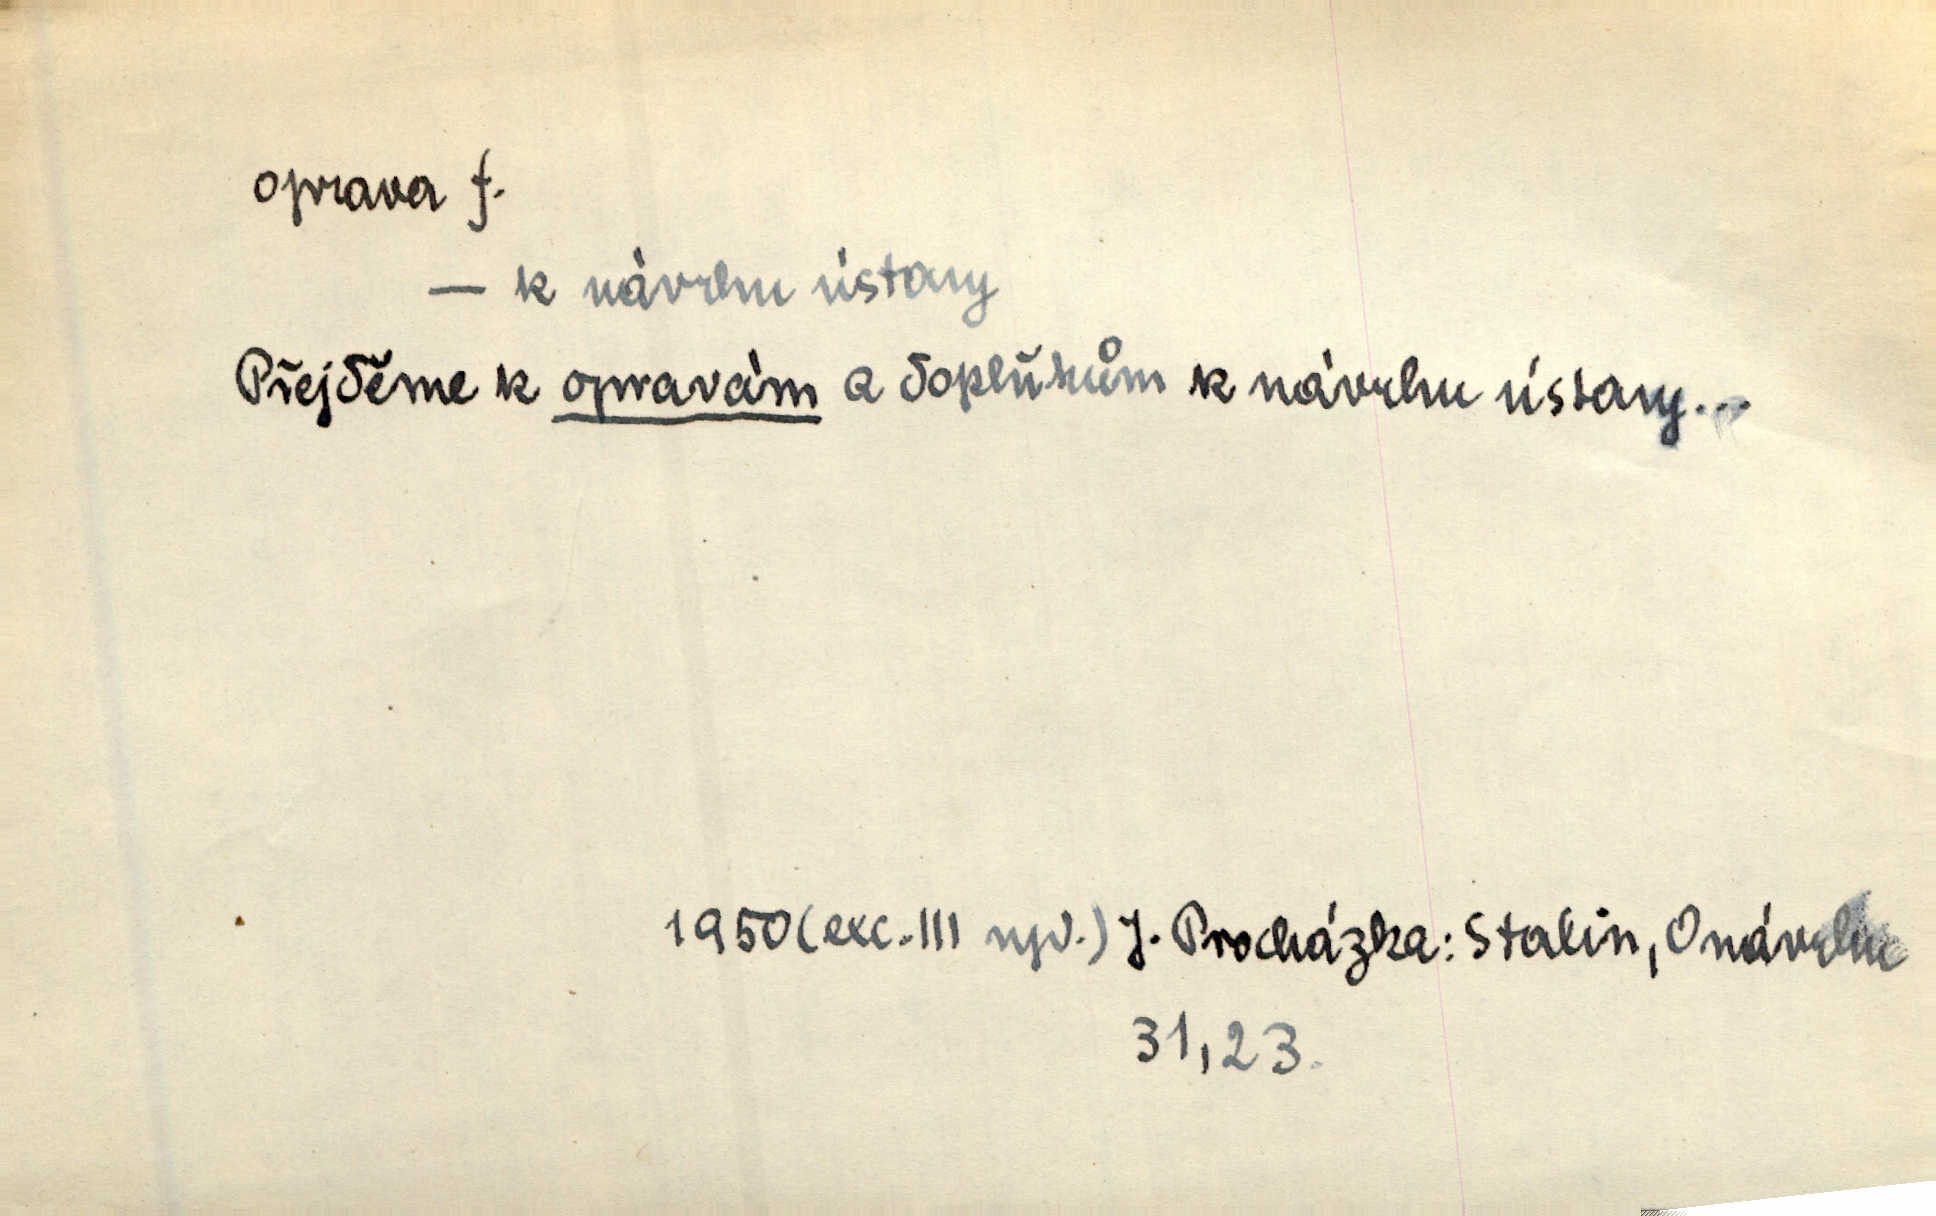 oprava f.
— k návrhu ústavy
Přejděme k opravám a doplňkům k návrhu ústavy...
1950 (exc. III vyd.) J. Procházka: Stalin, O návrhu
31,23.